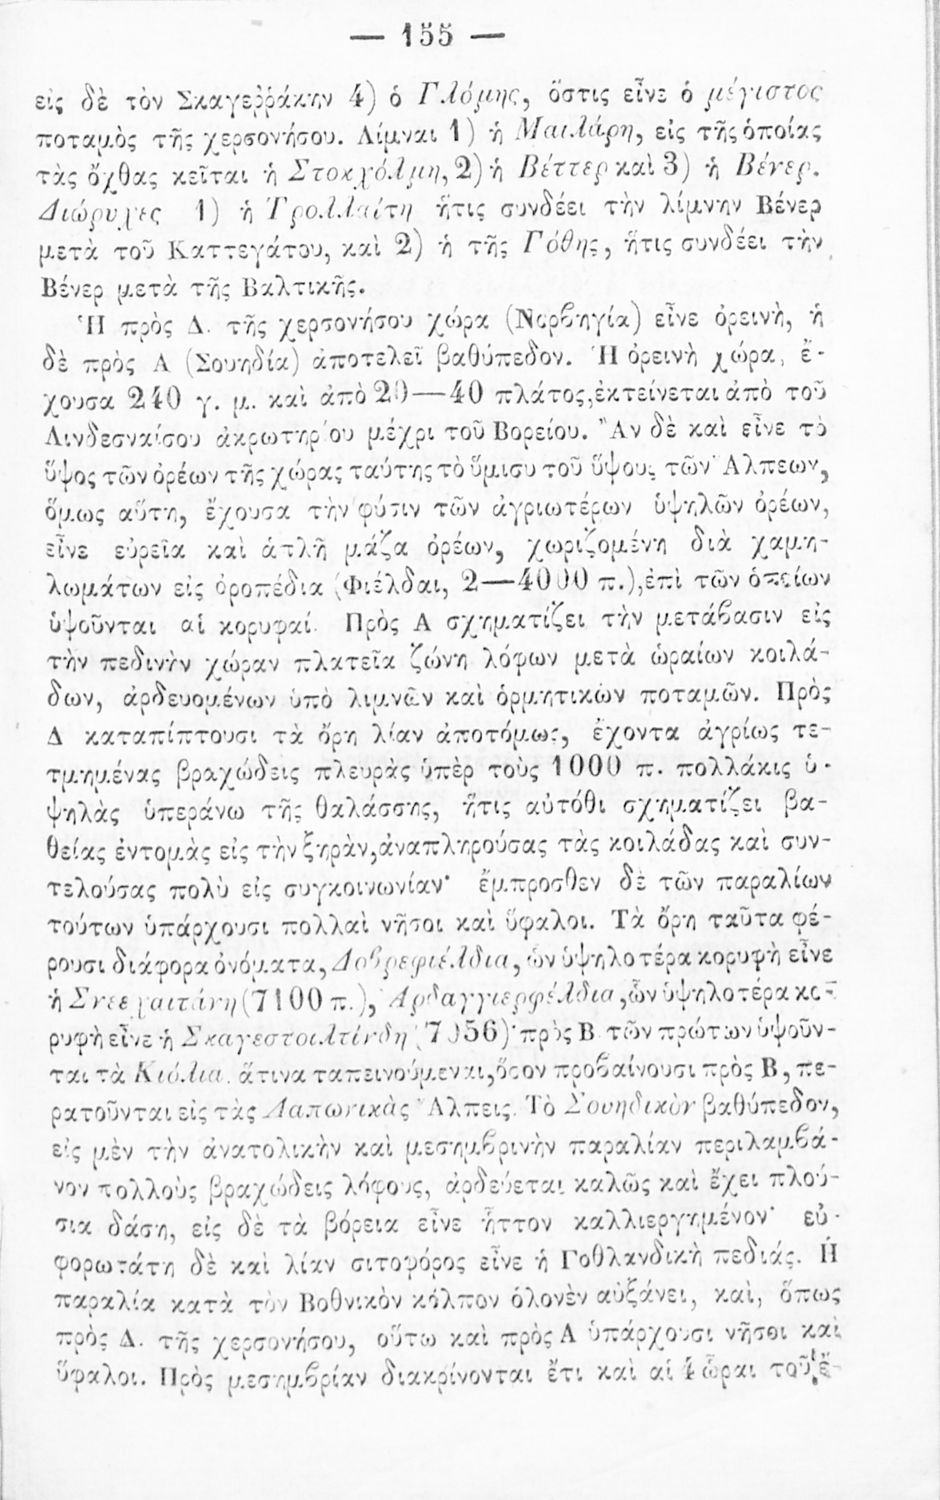 — 155 —
εἰς δὲ τὸν Σκαγεῤῥάκην 4) ὁ Γλόμης, ὅστις εἶνε ὁ μέγιστος
ποταμὸς τῆς χερσονήσου. Λίμναι 1) ἡ Μαιλάρη, εἰς τῆς ὁποίας
τὰς ὄχθας κεῖται ἡ Στοκχόλμη, 2) ἡ Βέττερ καὶ 3) ἡ Βένερ.
Διώρυχες 1) ἡ Τρολλαίτη ἥτις συνδέει τὴν λίμνην Βένερ
μετὰ τοῦ Καττεγάτου, καὶ 2) ἡ τῆς Γόθης, ἥτις συνδέει τὴν
Βένερ μετὰ τῆς Βαλτικῆς.
Ἡ πρὸς Δ. τῆς χερσονήσου χώρα (Νορβηγία) εἶνε ὀρεινὴ, ἡ
δὲ πρὸς Α (Σουηδία) ἀποτελεῖ βαθύπεδον. Ἡ ὀρεινὴ χώρα, ἔ-
χουσα 240 γ. μ. καὶ ἀπὸ 20—40 πλάτος, ἐκτείνεται ἀπὸ τοῦ
Λινδεσναίσου ἀκρωτηρίου μέχρι τοῦ Βορείου. Ἂν δὲ καὶ εἶνε τὸ
ὕψος τῶν ὀρέων τῆς χώρας ταύτης τὸ ὕμισυ τοῦ ὕψους τῶν Ἄλπεων,
ὅμως αὕτη, ἔχουσα τὴν φύσιν τῶν ἀγριωτέρων ὑψηλῶν ὀρέων,
εἶνε εὐρεῖα καὶ ἁπλῆ μάζα ὀρέων, χωριζομένη διὰ χαμη-
λωμάτων εἰς ὀροπέδια (Φιέλδαι, 2—4000 π.), ἐπὶ τῶν ὁποίων
ὑψοῦνται αἱ κορυφαί. Πρὸς Α σχηματίζει τὴν μετάβασιν εἰς
τὴν πεδινὴν χώραν πλατεῖα ζώνη λόφων μετὰ ὡραίων κοιλά-
δων, ἀρδευομένων ὑπὸ λιμνῶν καὶ ὁρμητικῶν ποταμῶν. Πρὸς
Δ καταπίπτουσι τὰ ὄρη λίαν ἀποτόμως, ἔχοντα ἀγρίως τε-
τμημένας βραχώδεις πλευρὰς ὑπὲρ τοὺς 1000 π. πολλάκις ὑ-
ψηλὰς ὑπεράνω τῆς θαλάσσης, ἥτις αὐτόθι σχηματίζει βα-
θείας ἐντομὰς εἰς τὴν ξηρὰν, ἀναπληρούσας τὰς κοιλάδας καὶ συν-
τελούσας πολὺ εἰς συγκοινωνίαν· ἔμπροσθεν δὲ τῶν παραλίων
τούτων ὑπάρχουσι πολλαὶ νῆσοι καὶ ὕφαλοι. Τὰ ὄρη ταῦτα φέ-
ρουσι διάφορα ὀνόματα, Δοβρεφιέλδια, ὧν ὑψηλοτέρα κορυφὴ εἶνε
ἡ (7100 π.), Ἀρδαγγιερφέλδια, ὧν ὑψηλοτέρα κο-
ρυφὴ εἶνε ἡ Σκαγεστοιλτίνδη πρὸς Β τῶν πρώτων ὑψοῦν-
ται τὰ Κιόλια, ἅτινα ταπεινούμεναι, ὅσον προβαίνουσι πρὸς Β, πε-
ρατοῦνται εἰς τὰς Λαπωνικὰς Ἄλπεις. Τὸ Σουηδικὸν βαθύπεδον,
εἰς μὲν τὴν ἀνατολικὴν καὶ μεσημβρινὴν παραλίαν περιλαμβά-
νον πολλοὺς βραχώδεις λόφους, ἀρδεύεται καλῶς καὶ ἔχει πλού-
σια δάση, εἰς δὲ τὰ βόρεια εἶνε ἧττον καλλιεργημένον· εὐ-
φορωτάτη δὲ καὶ λίαν σιτοφόρος εἶνε ἡ Γοθλανδικὴ πεδιάς. Ἡ
παραλία κατὰ τὸν Βοθνικὸν κόλπον ὁλονὲν αὐξάνει, καὶ, ὅπως
πρὸς Δ. τῆς χερσονήσου, οὕτω καὶ πρὸς Α ὑπάρχουσι νῆσοι καὶ
ὕφαλοι. Πρὸς μεσημβρίαν διακρίνονται ἔτι καὶ αἱ 4 ὧραι τοῦ ἔ-